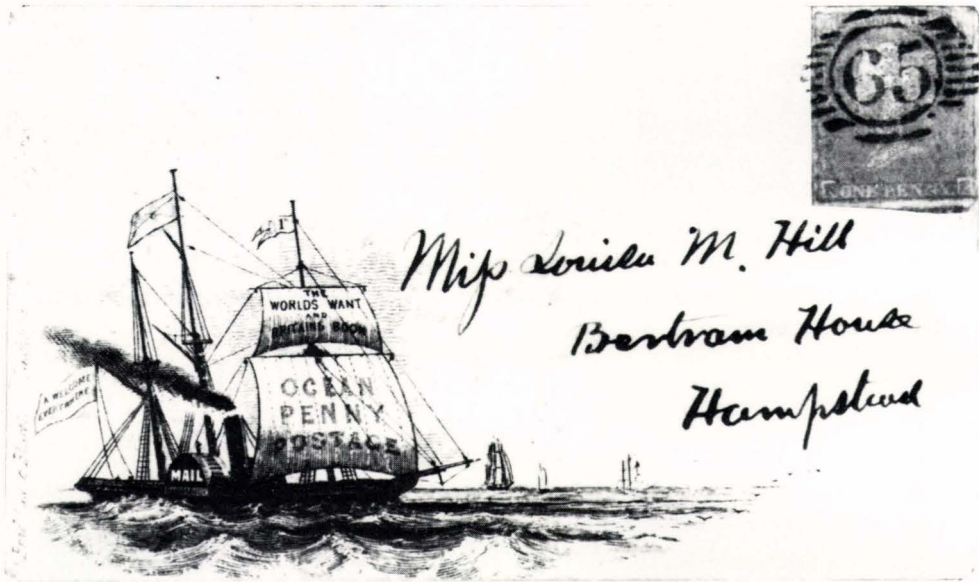 65
ONE PENNY
Miss Louisa M. Hill
Bertram House
Hampstead
THE
WORLDS WANT
AND
BRITAINS BOON
OCEAN
PENNY
POSTAGE
A WELCOME
EVERYWHERE
MAIL